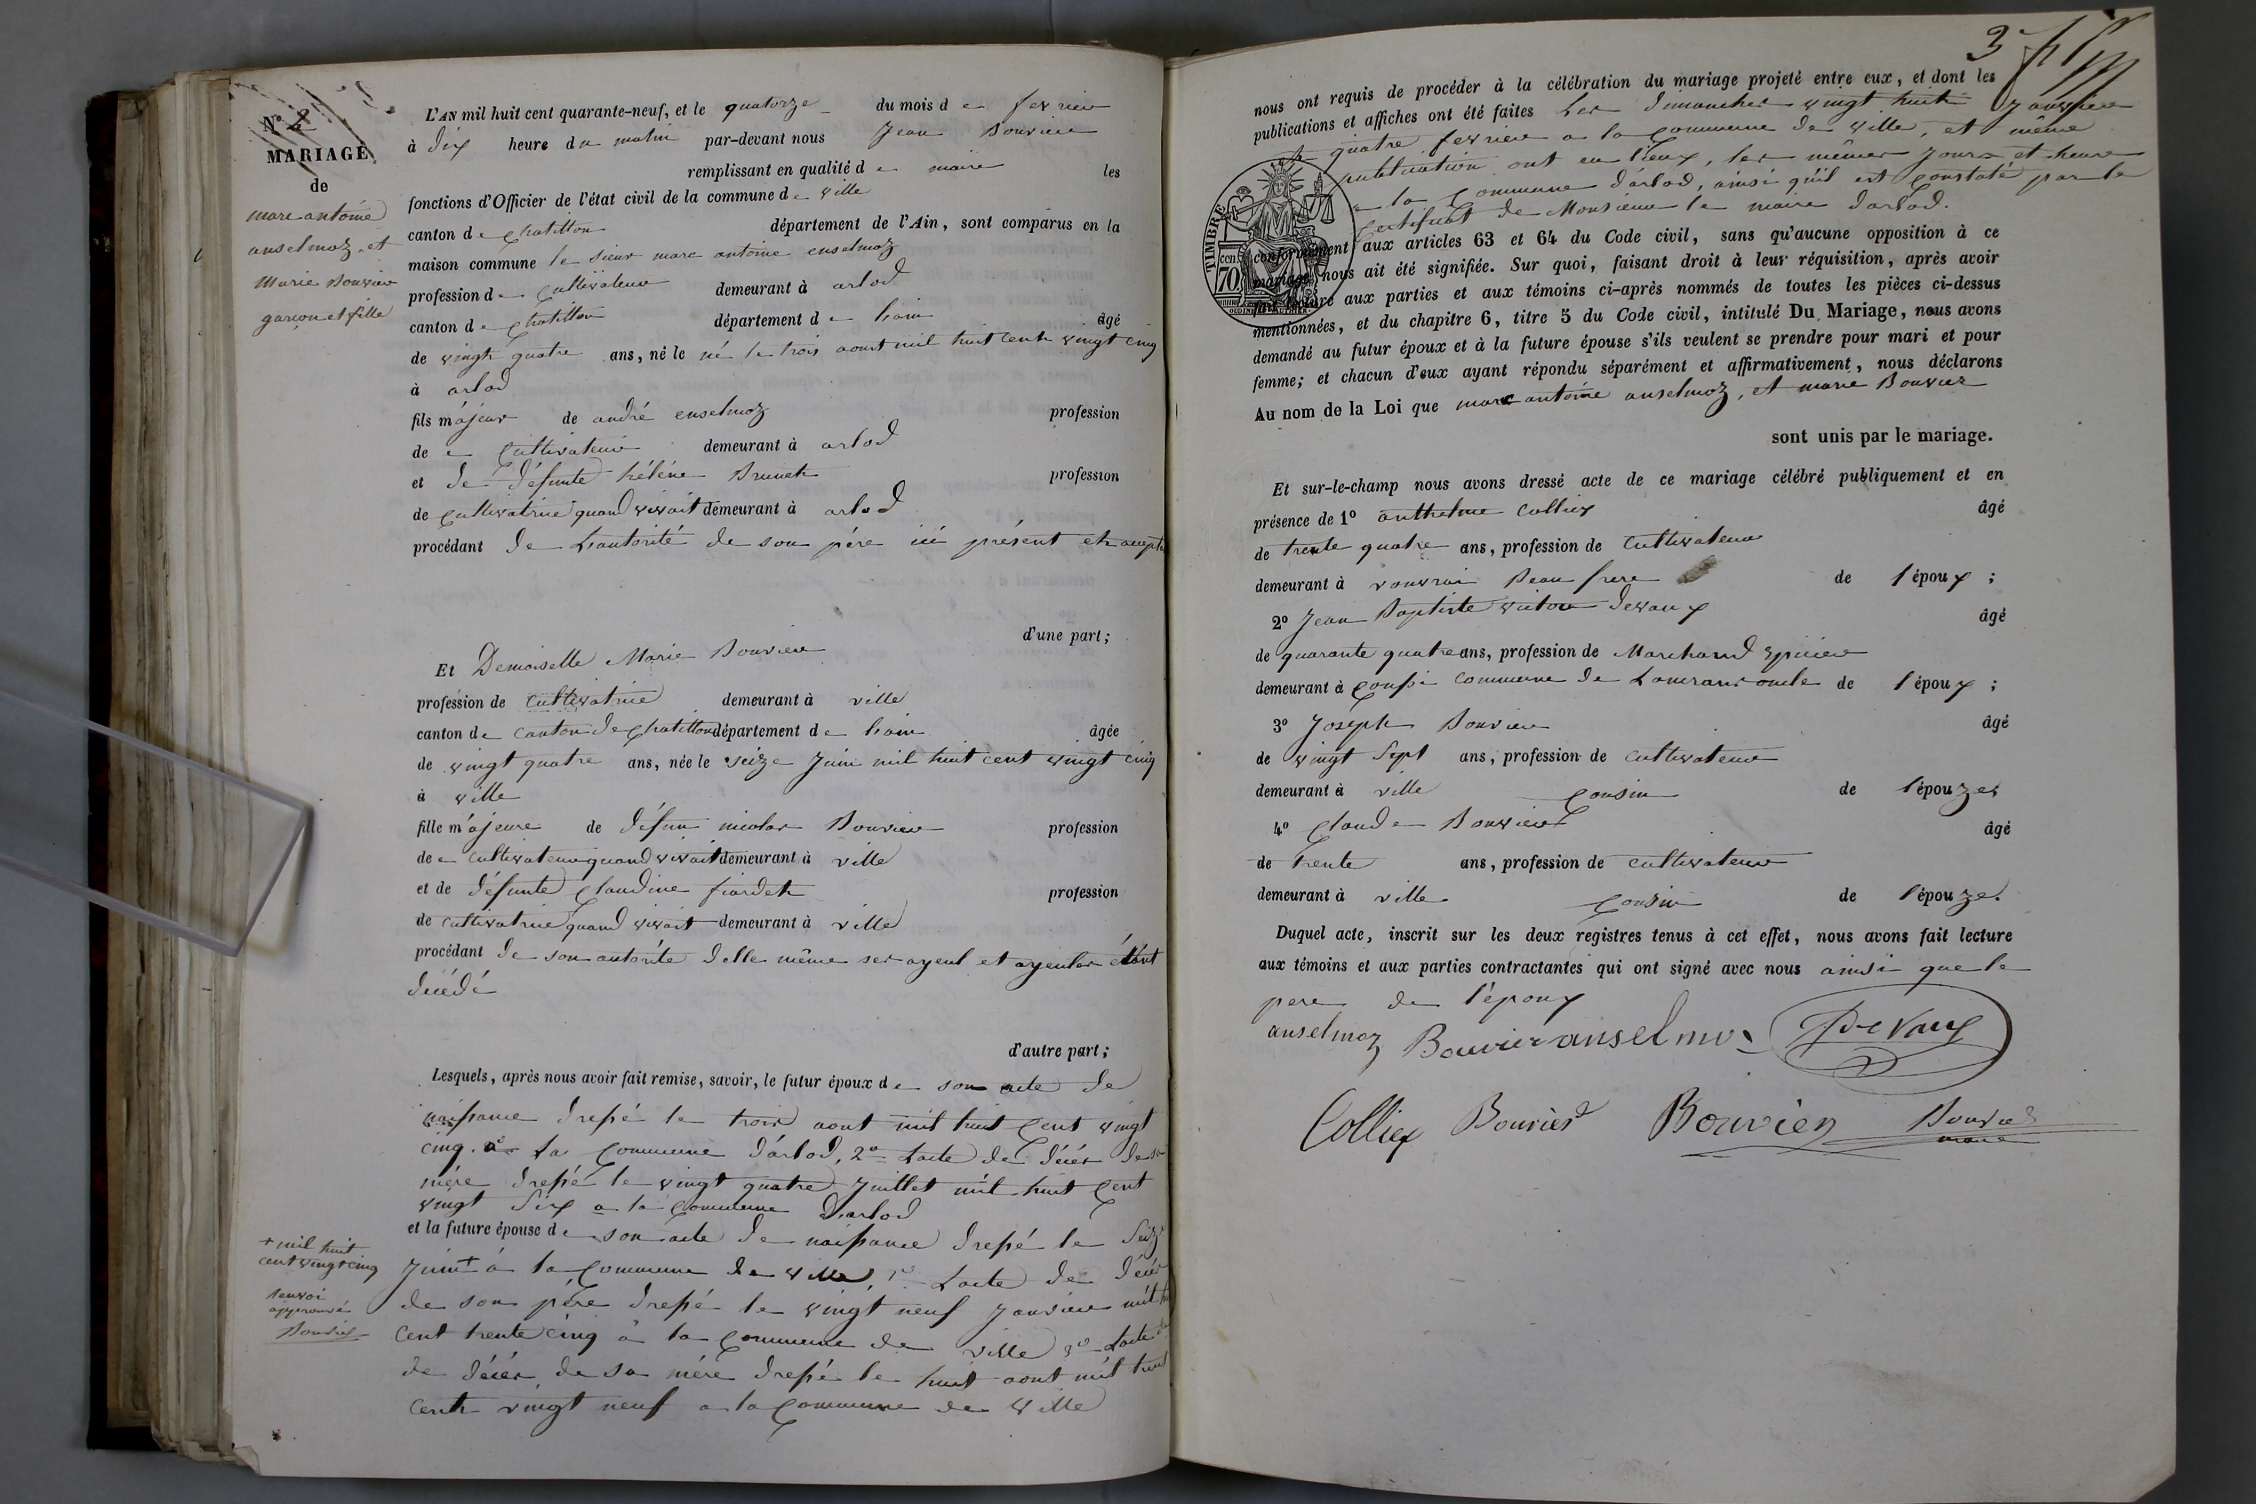 N.º 2
MARIAGE
de
marc antoine
anselmoz et
Marie Bouvier
garçon et fille
L'AN mil huit cent quarante-neuf, et le quatorze du mois de fevrier
à dix heure du matin par-devant nous Jean Bouvier
remplissant en qualité de maire les
fonctions d'Officier de l'état civil de la commune de ville
canton de chatillon département de l'Ain, sont comparus en la
maison commune le sieur marc antoine enselmoz
profession de cultivateur demeurant à arlod
canton de chatillon département de lain âgé
de vingt quatre ans, né le né le trois aout mil huit cent vingt cinq
à arlod
fils májeur de andré enselmoz profession
de e cultivateur demeurant à arlod
et de défunte hélène Brunet profession
de cultivatrice quand vivait demeurant à arlod
procédant de L'autorité de son père ici présent et accept
d'une part;
Et Demoiselle Marie Bouvier
profession de cultivatrice demeurant à ville
canton de canton de chatillon département de lain âgée
de vingt quatre ans, née le seize juin mil huit cent vingt cinq
à ville
fille májeure de défun nicolas Bouvier profession
de e cultivateur quand vivait demeurant à ville
et de défunte claudine fiardet profession
de cultivatrice quand vivait demeurant à ville
procédant de son autorité delle même ses ayeul et ayeulas étant
décédé
d'autre part;
Lesquels, après nous avoir fait remise, savoir, le futur époux de son acte de
naissance dressé le trois aout mil huit cent vingt
cinq a la commune d'arlod, 2º Lacte de décés de sa
mère dressé le vingt quatre juillet mil huit cent
vingt six a la commune d'arlod
et la future épouse de son acte de naissance dressé le seize
juin + à la commune de ville, Lacte de décés
de son père dressé le vingt neuf janvier mil
cent trente cinq à la commune de ville 3º Lacte
de décés de sa mére dressé le huit aout mil huit
cent vingt neuf a la commune de ville
+ mil huit
cent vingt cinq
renvoi
approuvé
Bouvier
3
nous ont requis de procéder à la célébration du mariage projeté entre eux, et dont les
publications et affiches ont été faites Les dimanches vingt huit janvier
et quatre fevrier a la commune de ville, et même
publication ont eu lieux, les mêmes jours et heure
a la commune d'arlod, ainsi qu'il est constaté par le
certificat de Monsieur le maire darlod.
TIMBRE
70 cen.
conformément aux articles 63 et 64 du Code civil, sans qu'aucune opposition à ce
mariage nous ait été signifiée. Sur quoi, faisant droit à leur réquisition, après avoir
fait lecture aux parties et aux témoins ci-après nommés de toutes les pièces ci-dessus
mentionnées, et du chapitre 6, titre 5 du Code civil, intitulé Du Mariage, nous avons
demandé au futur époux et à la future épouse s'ils veulent se prendre pour mari et pour
femme; et chacun d'eux ayant répondu séparément et affirmativement, nous déclarons
Au nom de la Loi que marc antoine anselmoz, et marie Bouvier
sont unis par le mariage.
Et sur-le-champ nous avons dressé acte de ce mariage célébré publiquement et en
présence de 1º anthelme Colliex âgé
de trente quatre ans, profession de cultivateur
demeurant à vouvrai Beau frere de l'époux;
2º Jean Baptiste victor devaux âgé
de quarante quatre ans, profession de Marchand Epicier
demeurant à coupi commune de Lancrans oncle de l'époux;
3º Joseph Bouvier âgé
de vingt sept ans, profession de cultivateur
demeurant à ville cousin de l'épouze;
4º Claude Bouvier âgé
de trente ans, profession de cultivateur
demeurant à ville cousin de l'épouze.
Duquel acte, inscrit sur les deux registres tenus à cet effet, nous avons fait lecture
aux témoins et aux parties contractantes qui ont signé avec nous ainsi que le
pere de l'époux
anselmoz Bouvier anselmoz Devaux
Colliex Bouvier Bouvier Bouvier
maire